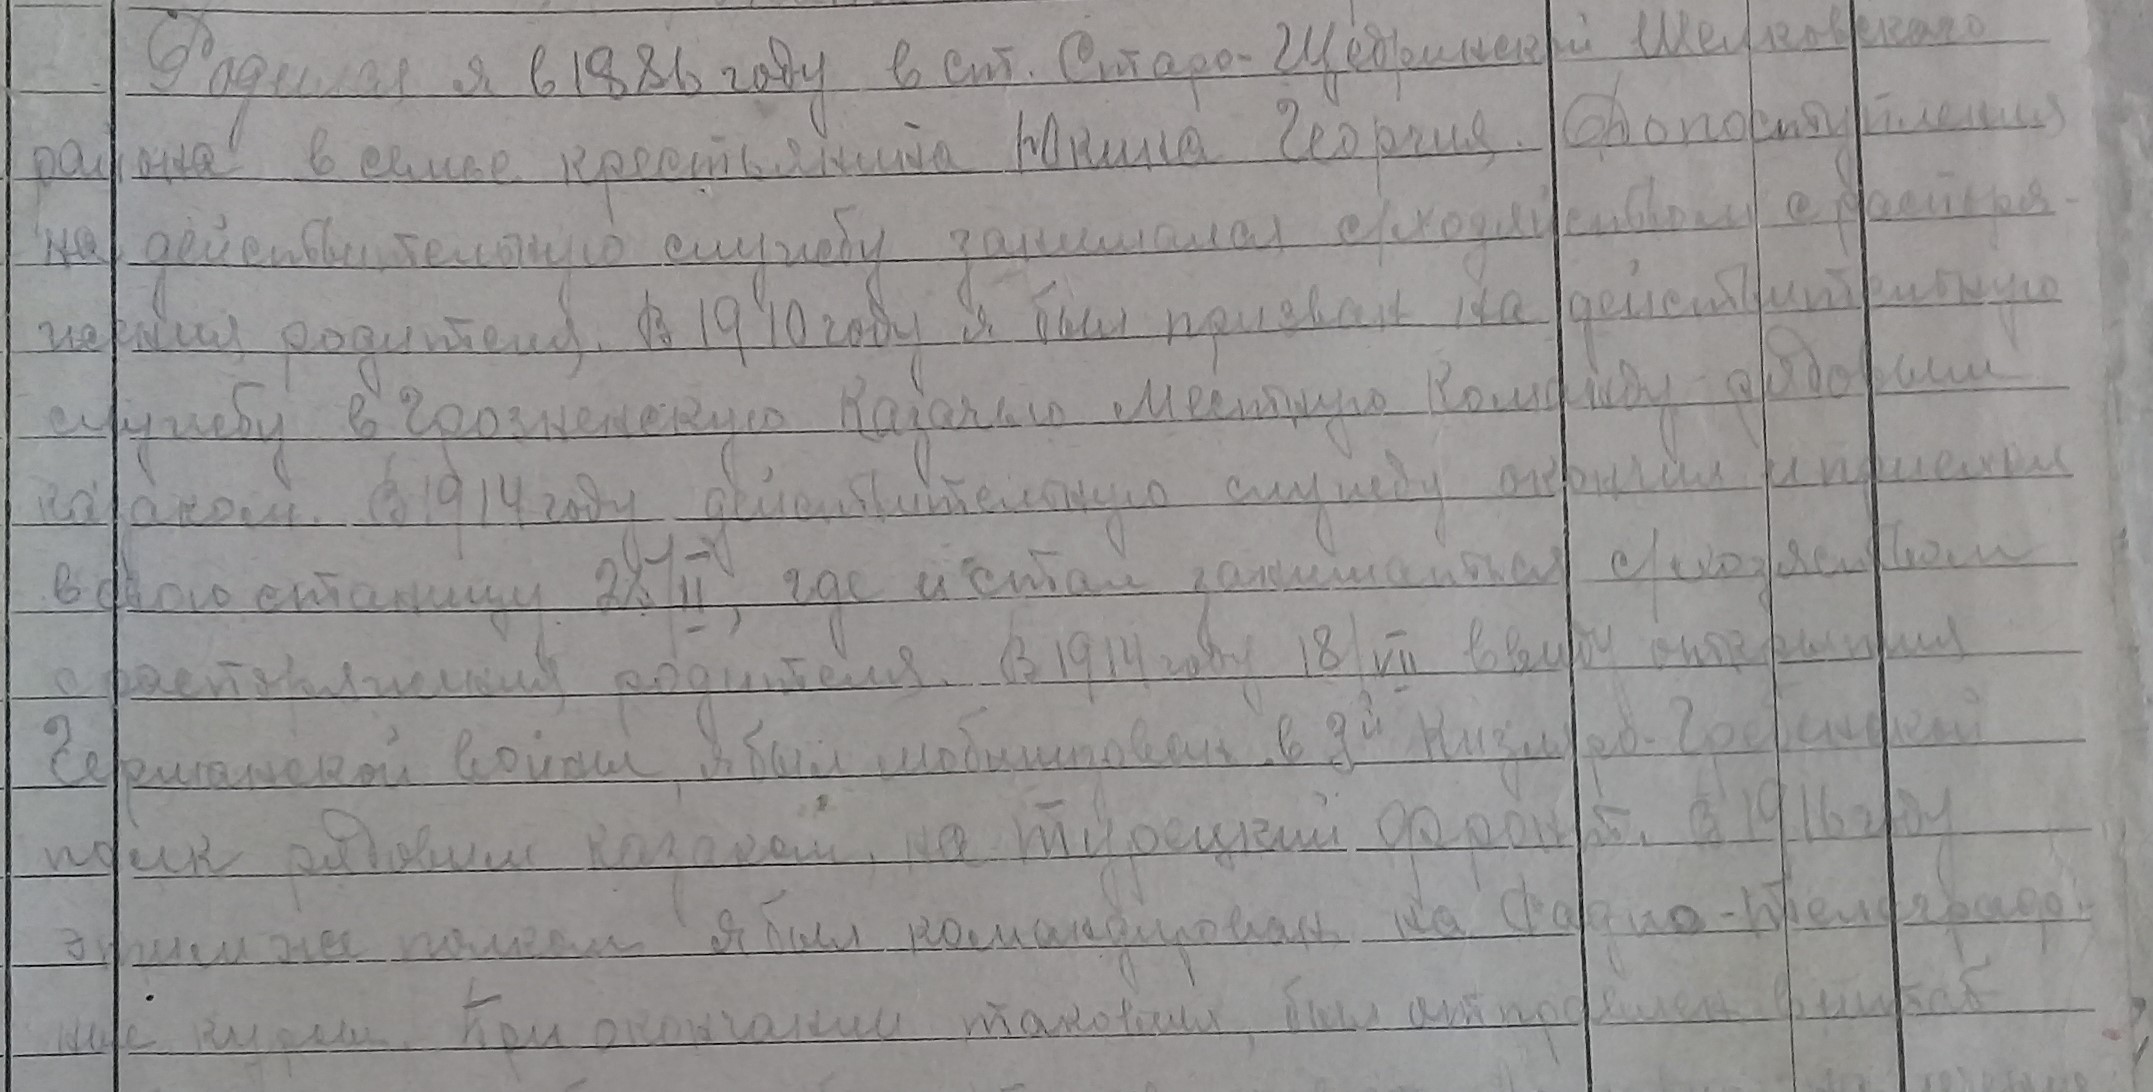 Родился я в 1886 году в ст. Старо-Щедринской Шелковского
района в семье крестьянина Юкина Георгия. До поступления
на действительную службу занимался с/хозяйством с распоря-
жения родителя. В 1910 году я был призван на действительную
службу в Грозненскую Казачью Местную Команду рядовым
казаком. В 1914 году действительную службу окончил и пришел
в свою станицу где и стал заниматься с/хозяйством
с родителя. В 1914 году 18/VII ввиду открытия
Германской войны я был мобилизован в 3й Кизляро-Гребенской
полк рядовым казаком, на Турецкий фронт. В 1916 году
этим же полком я был командирован на Радио-Телеграфо-
ные курсы. При окончании таковых, был отправлен в штаб